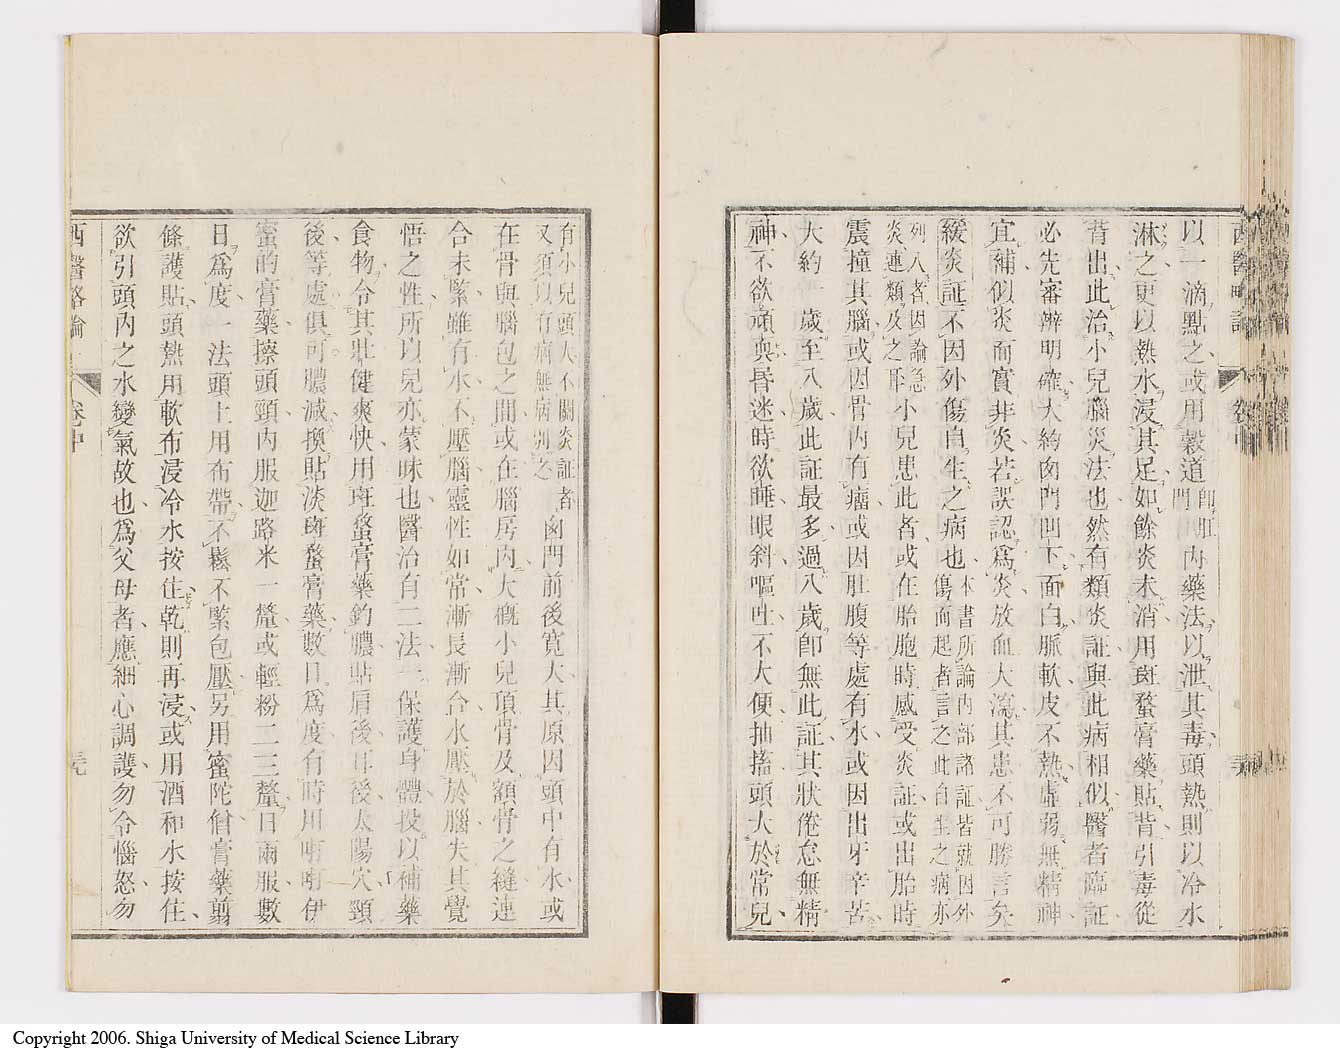 以一滴點之或用穀道卽肛門內藥法以泄其毒頭熱則以冷水
淋之更以熱水浸其足如餘炎未消用斑蝥膏藥貼背引毒從
背出此治小兒腦炎法也然有類炎証與此病相似醫者臨証
必先審辨明確大約囟門凹下面白脈軟皮不熱虛弱無精神
宜補似炎而實非炎若誤認爲炎放血大瀉其患不可勝言矣
緩炎証不因外傷自生之病也本書所論內部諸証皆就因外傷而起者言之此自生之病亦
列入者因論急炎連類及之耳小兒患此者或在胎胞時感受炎証或出胎時
震撞其腦或因骨內有癗或因肚腹等處有水或因出牙辛苦
大約一歲至八歲此証最多過八歲卽無此証其狀倦怠無精
神不欲頑與昏迷時欲睡眼斜嘔吐不大便抽搐頭大於常兒
有小兒頭大不關炎証者又須以有病無病別之囟門前後寬大其原因頭中有水或
在骨與腦包之間或在腦房內大槪小兒頂骨及額骨之縫連
合未緊雖有水不壓腦靈性如常漸長漸合水壓於腦失其覺
悟之性所以兒亦蒙昧也醫治有二法一保護身體投以補藥
食物令其壯健爽快用斑蝥膏藥釣膿貼肩後耳後太陽穴頸
後等處俱可膿減換貼淡斑蝥膏藥數日爲度有時用啲啲伊
蜜的膏藥擦頭頸內服迦路米一釐或輕粉二三釐日兩服數
日爲度一法頭上用布帶不鬆不緊包壓另用蜜陀僧膏藥剪
條護貼頭熱用軟布浸冷水按住乾則再浸或用酒和水按住
欲引頭內之水變氣故也爲父母者應細心調護勿令惱怒勿
西醫略論
卷中